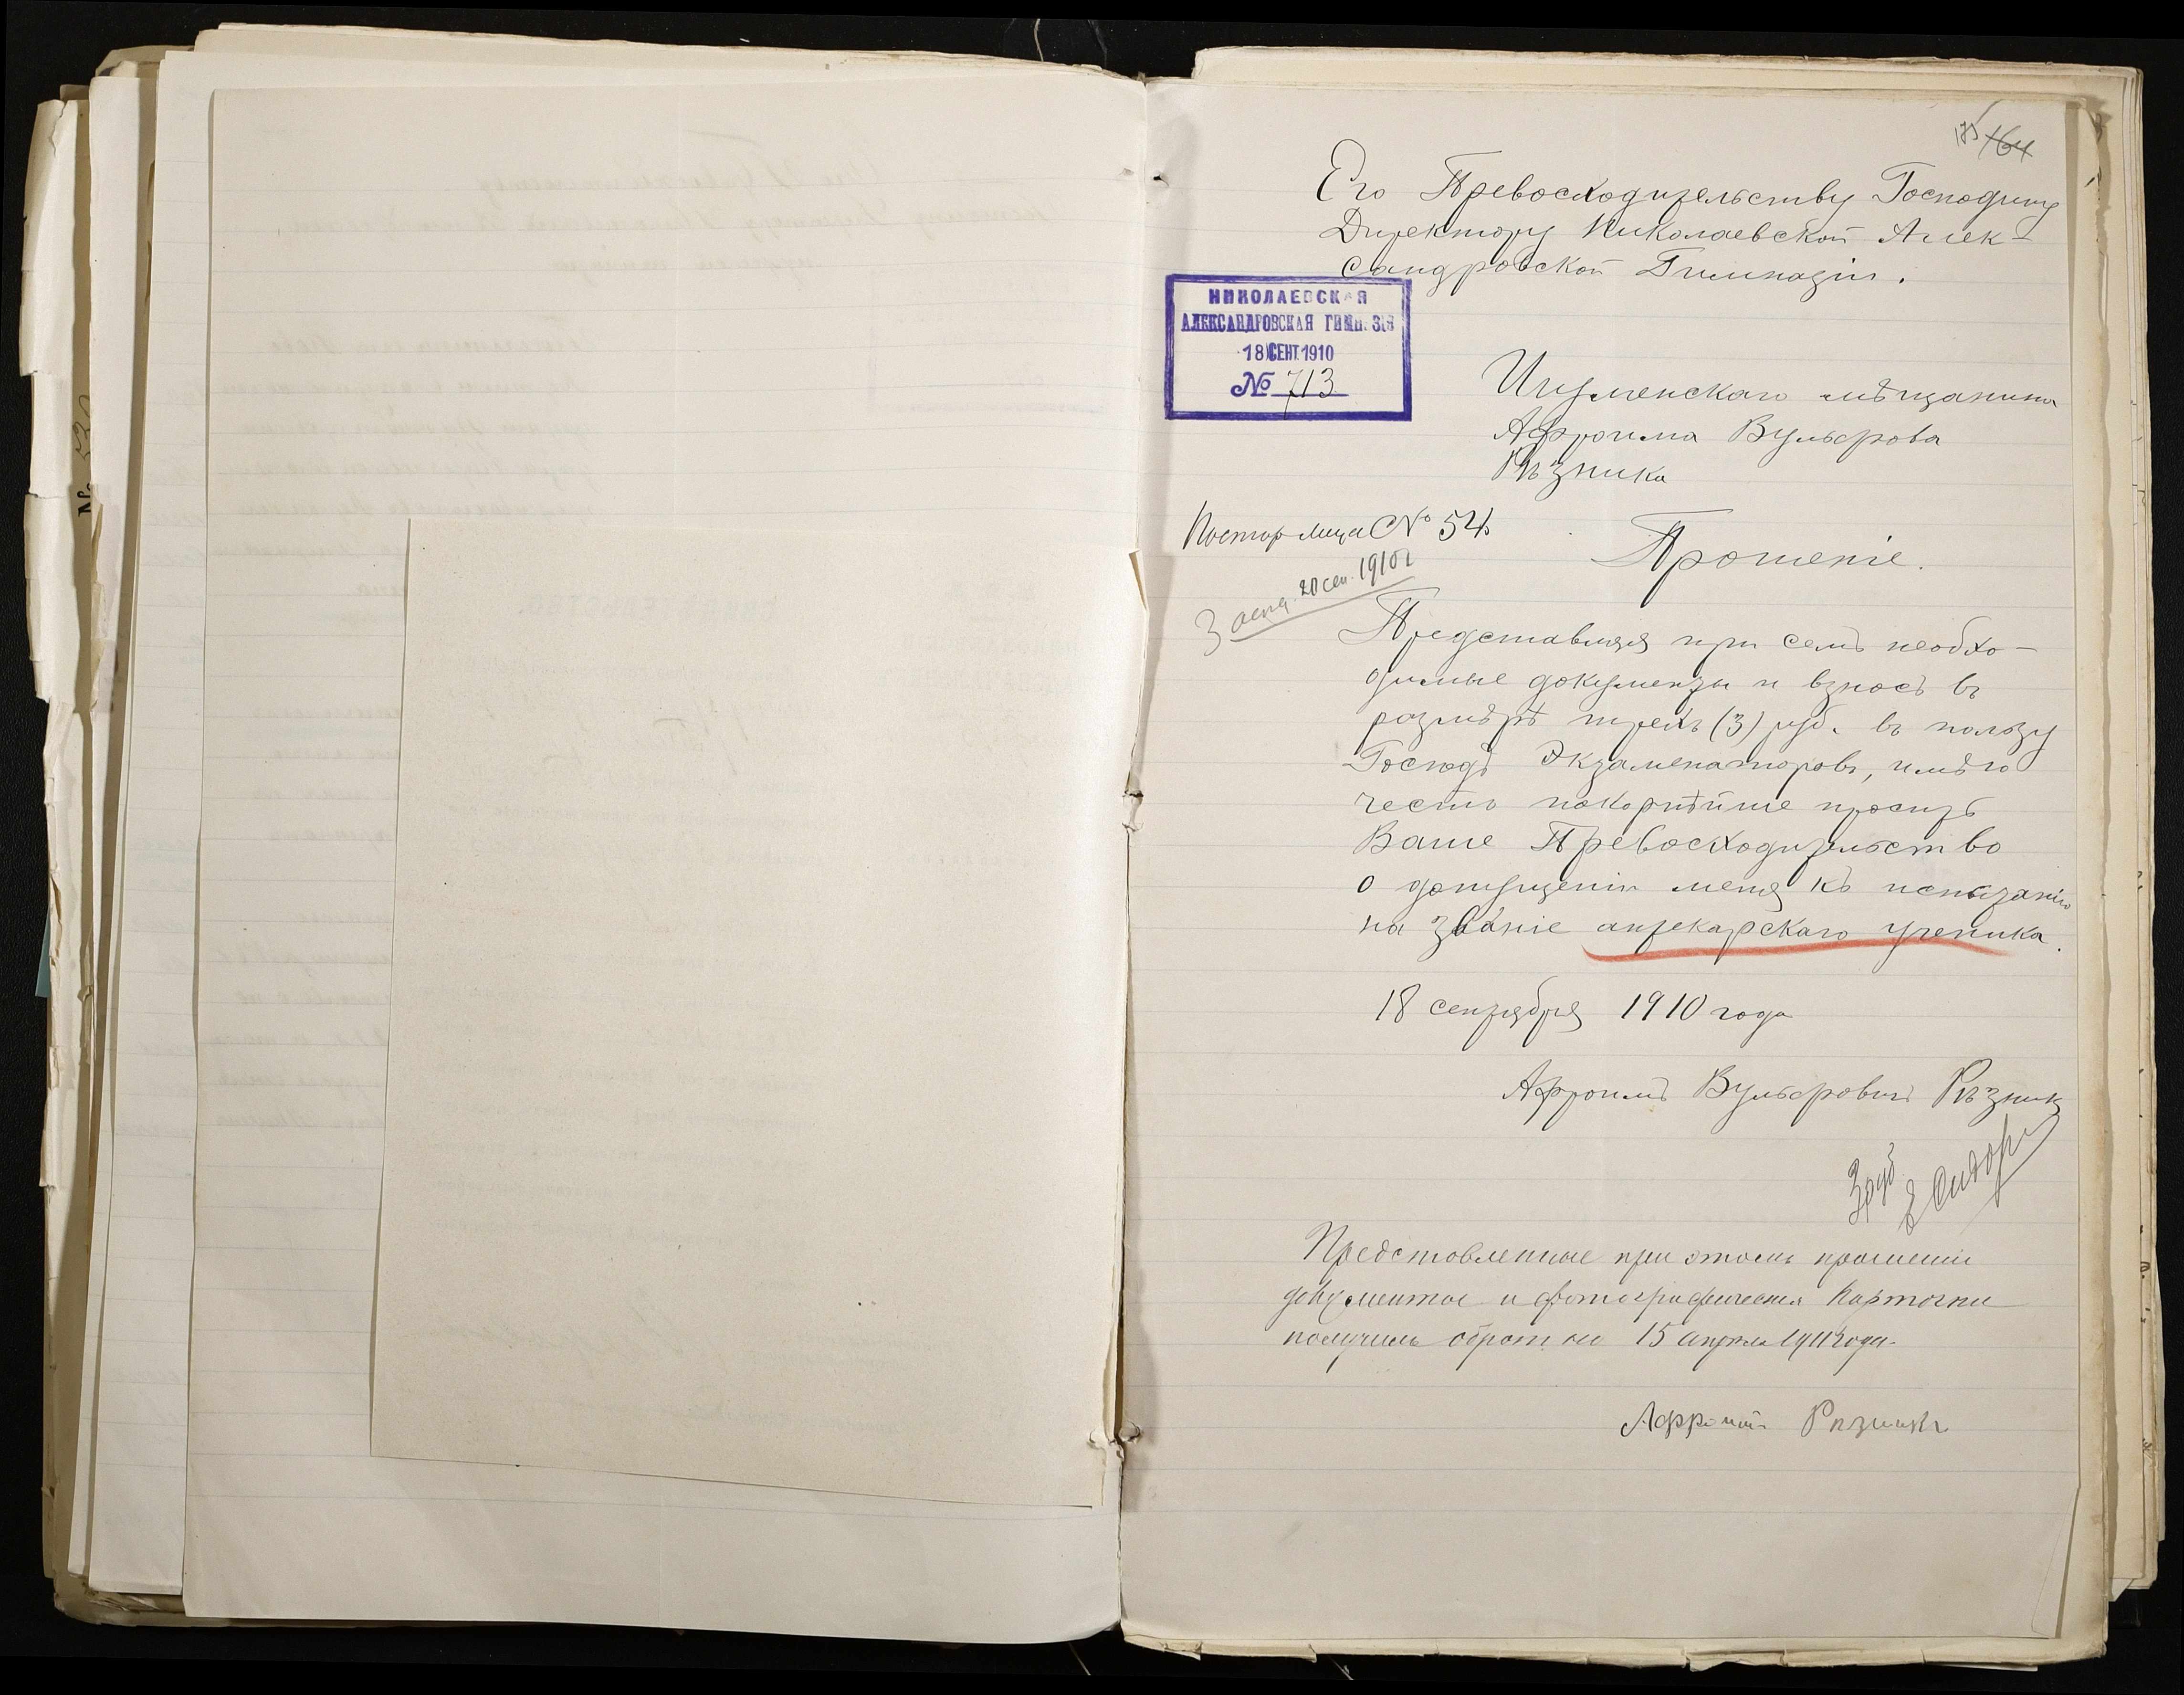 175 164
Его Превосходительству Господину
Директору Николаевской Алек-
сандровской Гимназіи.
НИКОЛАЕВСКАЯ
АЛЕКСАНДРОВСКАЯ ГИМН.ЗІЯ
18 СЕНТ.1910
№ 713
Игуменскаго мѣщанина
Афроима Вульфова
Рѣзника
№ 54
20 сен. 1910 г
Прошеніе.
Представляя при семъ необхо-
димые документы и взносъ въ
размѣрѣ трехъ (3) руб. въ пользу
Господъ Экзаменаторовъ, имѣю
честь покорнѣйше просить
Ваше Превосходительство
о допущеніи меня къ испытанію
на званіе аптекарскаго ученика.
18 сентября 1910 года
Афроимъ Вульфовичъ Рѣзник
3 руб.
Представленные при этомъ прошении
документы и фотографическія карточки
получилъ обратно 15 апрѣля 1911 года.
Афроимъ Рѣзникъ